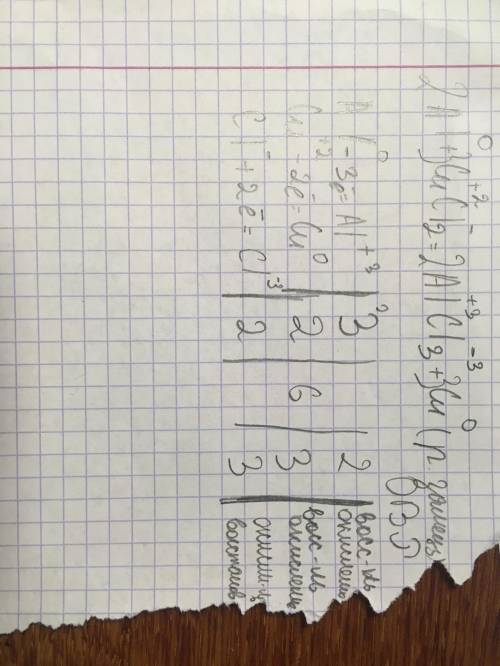 2Al⁰+3Cu⁺²Cl₂⁻=2Al⁺³Cl₃⁻³+3Cu⁰ (р. замещ)
ОВР
Al⁰-3e̅=Al⁺³ | 3 | | 2 | восс-ль окислень
Cu⁺²-2e̅=Cu⁰ | 2 | 6 | 3 | восс-ль окислень
Cl⁻+2e̅=Cl⁻³ | 2 | | 3 | окисл-ль восстанов